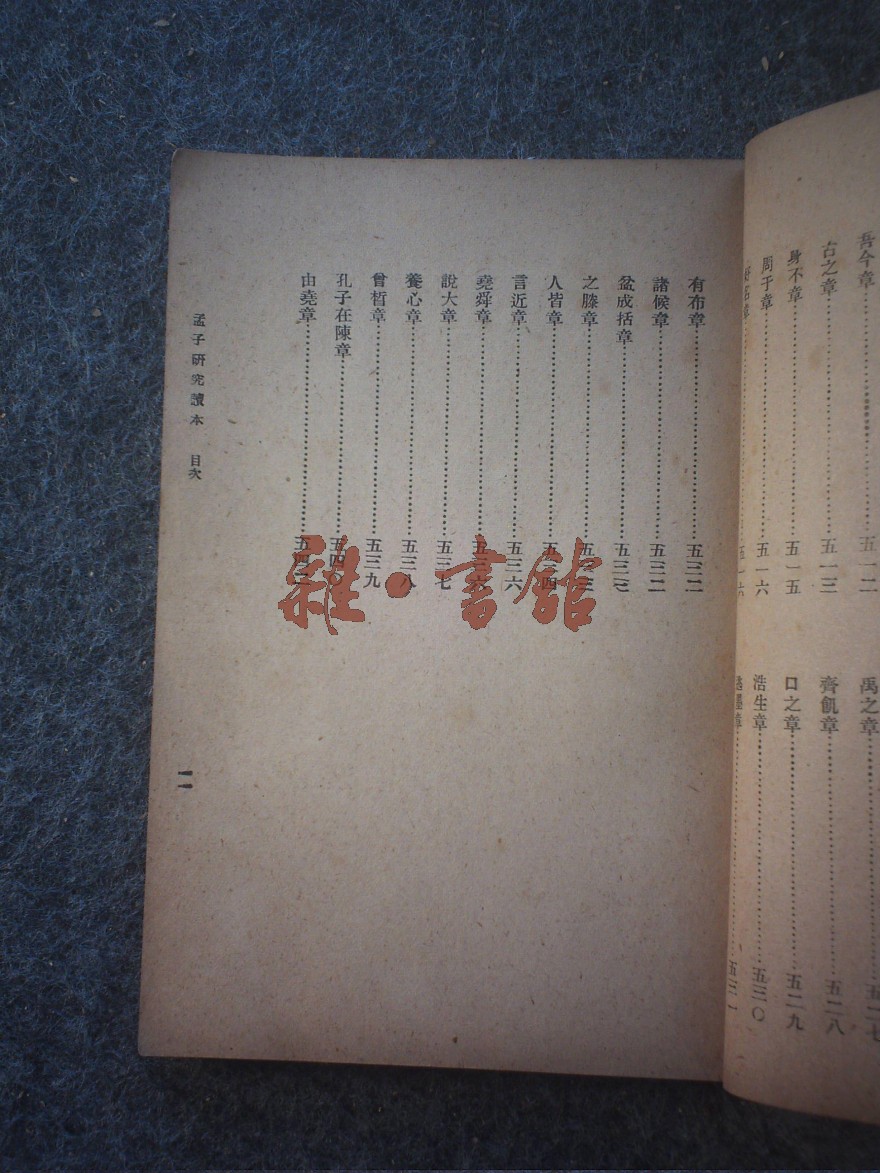 吾今章……五一二
古之章……五一三
身不章……五一五
周于章……五一六
好名章……五一六
禹之章……五二七
齊飢章……五二八
口之章……五二九
浩生章……五三〇
逃墨章……五三一
有布章……五三二
諸候章……五三二
盆成括章……
之滕章……五三三
人皆章……五三四
言近章……五三六
堯舜章……五三六
說大章……五三七
養心章……五三八
曾皙章……五三九
孔子在陳章……五四〇
由堯章……五四二
孟子研究讀本 目次
一一
雜·書館